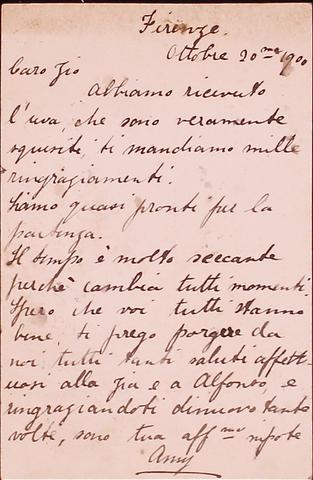 Firenze.
Ottobre 20me 1900
Caro Zio
Abbiamo ricevuto
l'uva, che sono veramente
squisiti, ti mandiamo mille
ringragiamenti.
Siamo quasi pronti per la
partenza.
Il tempo è molto seccante
perchè cambia tutti momenti.
Spero che voi tutti stanno
bene, ti prego porgere da
noi tutti tanti saluti affett-
uosi alla Zia e a Alfonso, e
ringragiandoti dinuovo tante
volte, sono tua affma nipote
Amy